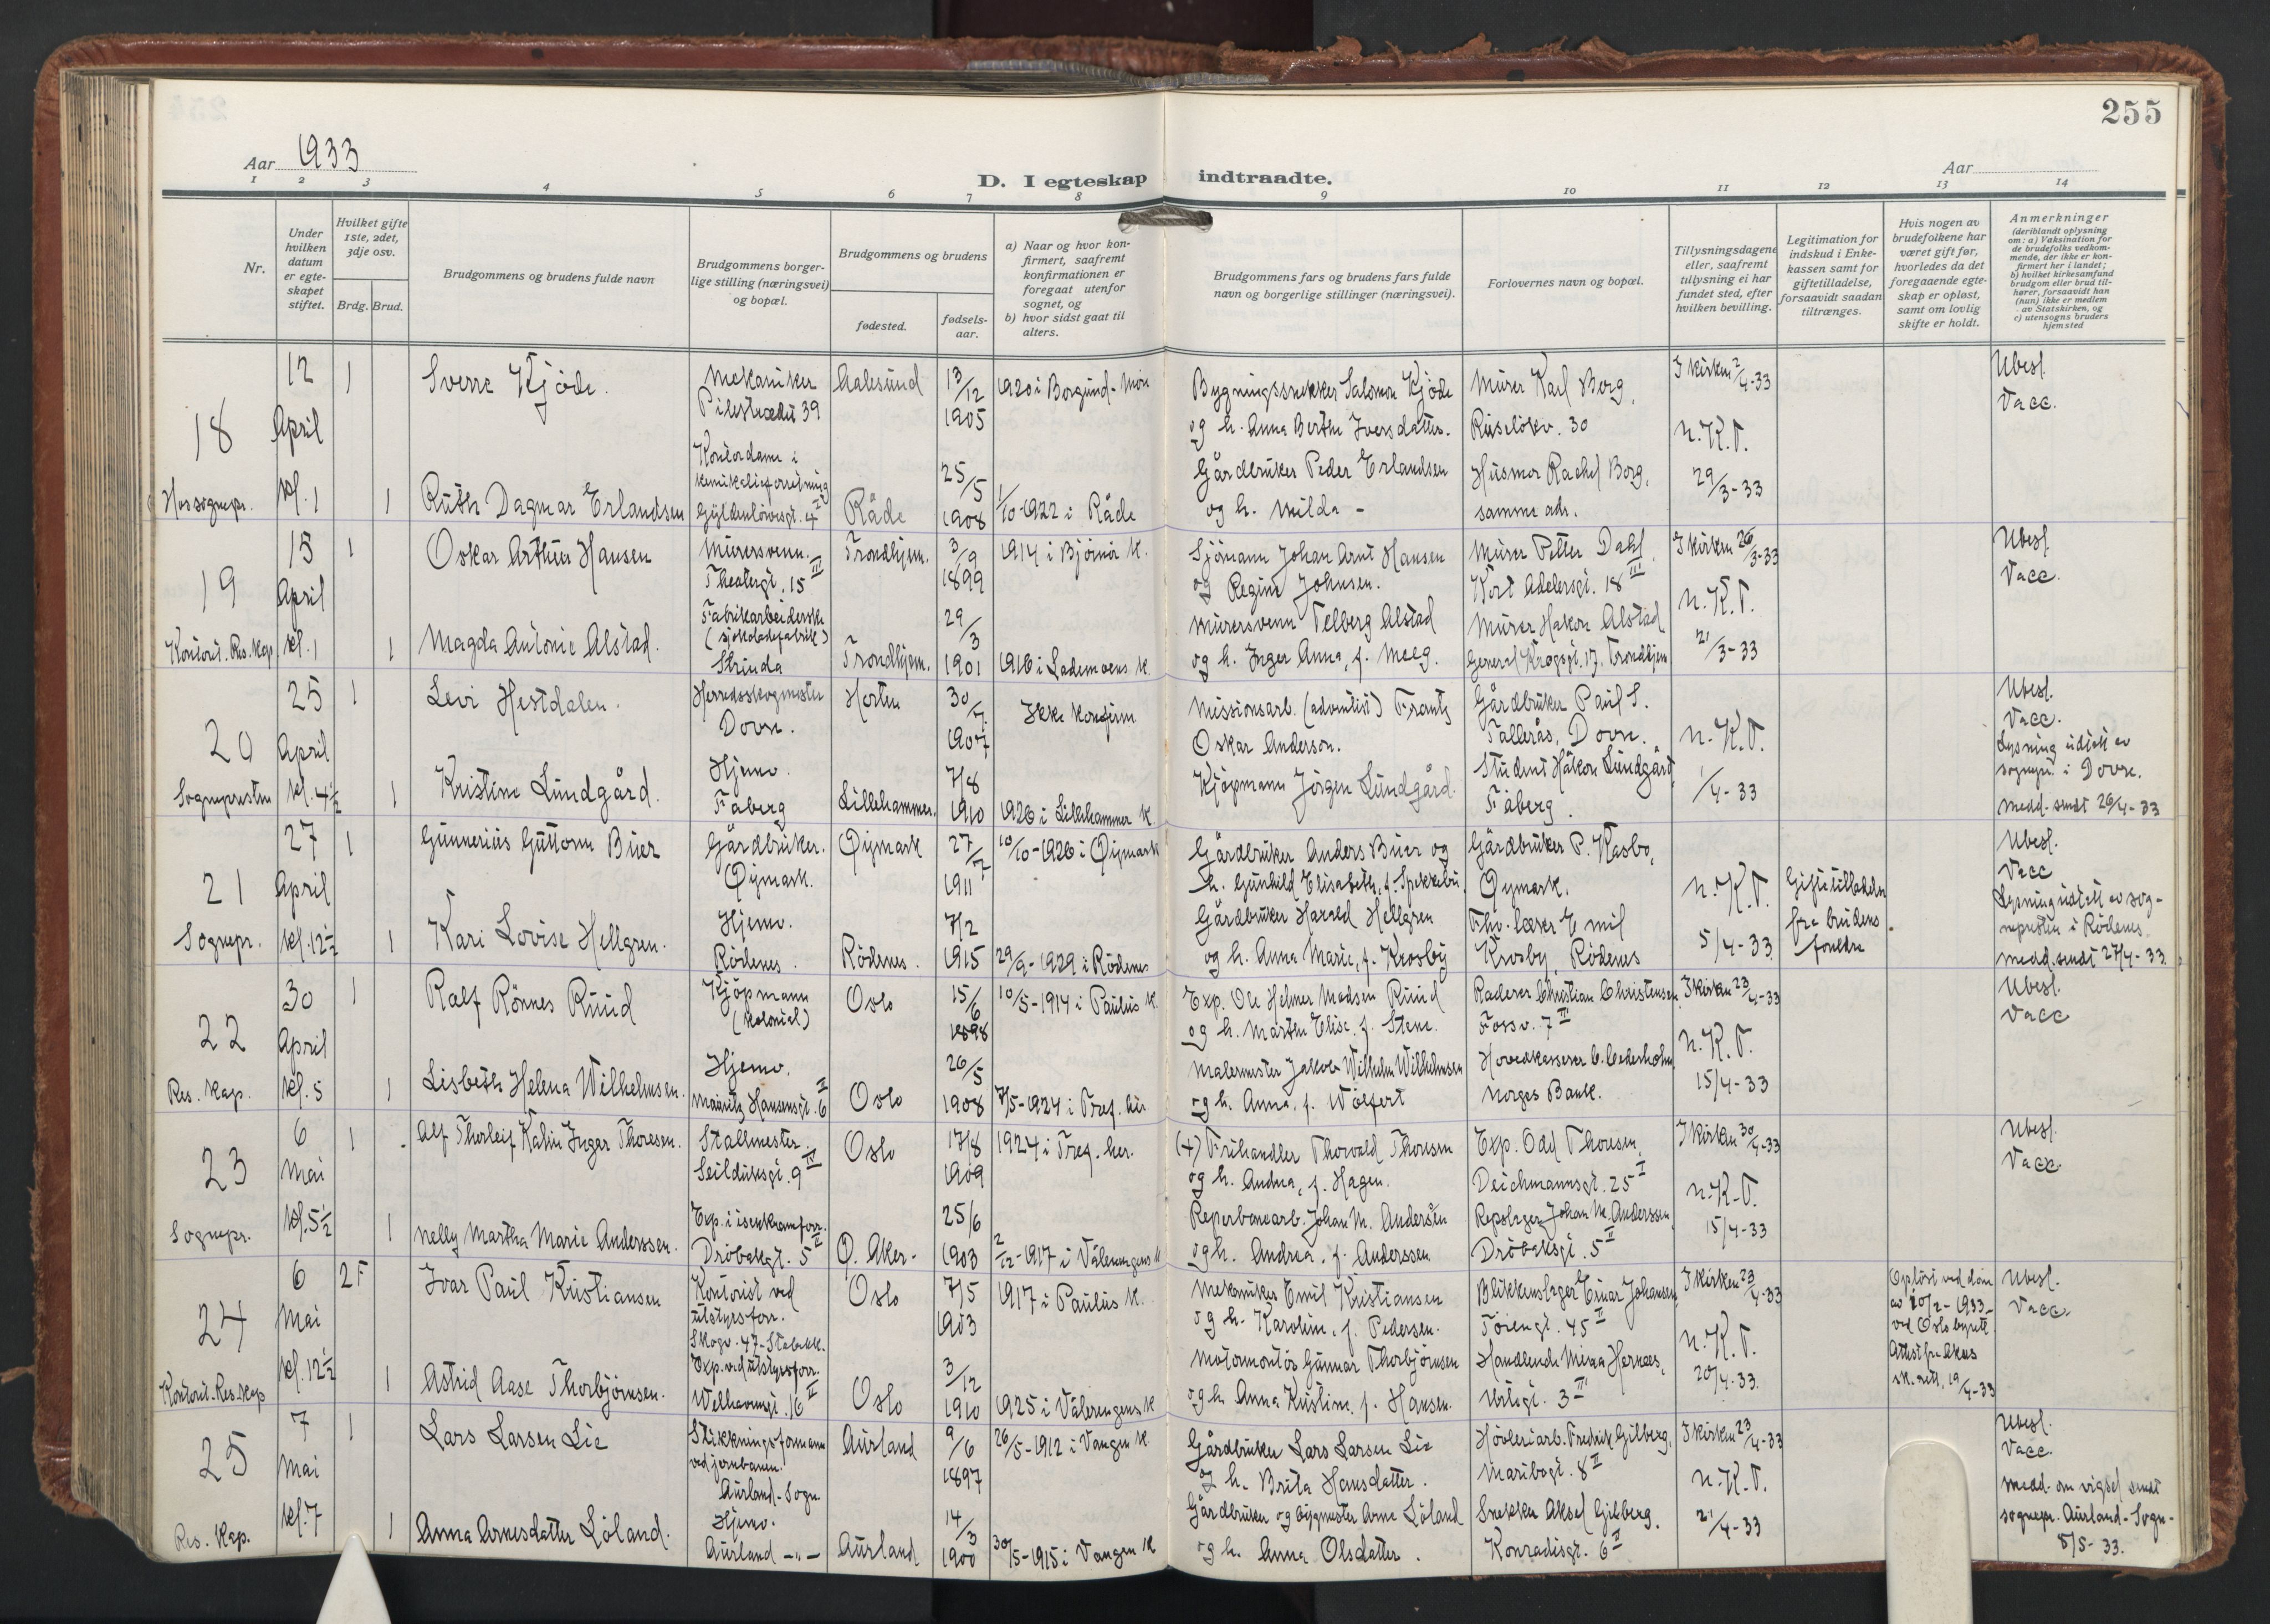 255
Aar 1933
Aar
D. I egteskap indtraadte.
1 2 3 4 5 6 7 8 9 10 11 12 13 14
Nr.
Under hvilken datum er egteskapet stiftet.
Hvilket gifte 1ste, 2det, 3dje osv.
Brdg. Brud.
Brudgommens og brudens fulde navn
Brudgommens borgerlige stilling (næringsvei) og bopæl.
Brudgommens og brudens
fødested.
fødselsaar.
a) Naar og hvor konfirmert, saafremt konfirmationen er foregaat utenfor sognet, og
b) hvor sidst gaat til alters.
Brudgommens fars og brudens fars fulde navn og borgerlige stillinger (næringsvei).
Forlovernes navn og bopæl.
Tillysningsdagene eller, saafremt tillysning ei har fundet sted, efter hvilken bevilling.
Legitimation for indskud i Enkekassen samt for giftetilladelse, forsaavidt saadan tiltrænges.
Hvis nogen av brudefolkene har været gift før, hvorledes da det foregaaende egteskap er opløst, samt om lovlig skifte er holdt.
Anmerkninger
(deriblandt oplysning om: a) Vaksination for de brudefolks vedkommende, der ikke er konfirmert her i landet; b) hvilket kirkesamfund brudgom eller brud tilhører, forsaavidt han (hun) ikke er medlem av Statskirken, og c) utensogns bruders hjemsted
18
12 April kl. 1
1
Sverre Kjöde.
Mekaniker
Pilestrædet 39
Aalesund
13/12 1905
1920 i Borgund - Möre
Bygningssnekker Salomon Kjöde
og h. Anna Berthe Iversdatter.
Murer Karl Borg,
Ruselökv. 30
I kirken 2/4-33
n.K.T.
29/3-33
Ubesl.
Vacc.
1
Ruth Dagmar Erlandsen
Kontordame i
kemikalieforretning
Gyldenlövesgt. 4 II
Råde
25/5 1908
1/10-1922 i Råde
Gårdbruker Peder Erlandsen
og h. Milda -
Husmor Rachel Borg,
samme adr.
19
15 April kl. 1
1
Oskar Arthur Hansen
Murersvenn.
Theatergt. 15 III
Trondhjem.
3/9 1899
1914 i Bjørnör K.
Sjömann Johan Arnt Hansen
og Regine Johnsen.
Murer Petter Dahl,
Kort Adelersgt. 18 III
I kirken 26/3-33
n.K.T.
21/3-33
Ubesl.
Vacc.
Kontorit. Res. Kap.
1
Magda Antonie Alstad.
Fabrikarbeiderske
(sjokoladefabrik)
Strinda
Trondhjem.
29/3 1901
1916 i Lademoens K.
Murersvenn Telberg Alstad
og h. Inger Anna, f. Meeg.
Murer Hakon Alstad
General Krogsgt. 17, Trondhjem
20
Sognepresten
25 April kl. 4 1/2
1
Levi Hestdalen.
Herredsskogmester
Dovre.
Horten
30/7 1907
Ikke konfirm.
Missionsarb. (adventist) Frantz
Oskar Anderson.
Gårdbruker Paul S.
Tallerås, Dovre.
n.K.T.
1/4-33
Ubesl.
Vacc.
Lysning utstedt av
sognepr. i Dovre.
Medd. sendt 26/4-33
1
Kristine Lundgård.
Hjemv.
Fåberg
Lillehammer.
7/8 1910
1926 i Lillehammer K.
Kjöpmann Jörgen Lundgård.
Student Håkon Lundgård,
Fåberg.
21
Sognepr.
27 April kl. 12 1/2
1
Gunnerius Guttorm Buer
Gårdbruker.
Öymark.
Öymark
27/12 1911
10/10-1926 i Öymark
Gårdbruker Anders Buer og
h. Gunhild Elisabeth, f. Spekkebu.
Gårdbruker P. Kasbo,
Öymark.
n.K.T.
5/4-33
Giftetilladelse
fra brudens
foreldre
Ubesl.
Vacc
Lysning utstedt av sog-
nepresten i Rödenes.
Medd. sendt 27/4-33.
1
Kari Lovise Hellgren.
Hjemv.
Rödenes.
Rödenes.
7/2 1915
29/9-1929 i Rödenes
Gårdbruker Harald Hellgren
og h. Anna Marie, f. Krosby
Fhv. lærer Emil
Krosby, Rödenes
22
Res. Kap.
30 April kl. 5
1
Ralf Rönnes Ruud
Kjöpmann
(kolonial)
Oslo
15/6 1898
10/5-1914 i Paulus K.
Exp. Ole Helmer Madsen Ruud
og h. Marthe Elise, f. Stene.
Raderer Christian Christensen,
Fossv. 7 II
I kirken 23/4-33
n.K.T.
15/4-33
Ubesl.
Vacc
1
Lisbeth Helena Wilhelmsen.
Hjemv.
Mauritz Hansensgt. 6 II
Oslo
26/5 1908
7/5-1924 i Tref. kir.
Malermester Jakob Wilhelm Wilhelmsen
og h. Anna, f. Wölfert
Hovedkasserer C. Cederholm
Norges Bank.
23
Sognepr.
6 Mai kl. 5 1/2
1
Alf Thorleif Kalin Inger Thoresen.
Stallmester.
Seilduksgt. 9 IV
Oslo
17/8 1909
1924 i Tref. her.
(+) Frihandler Thorvald Thoresen
og h. Andrea, f. Hagen.
Exp. Odd Thoresen,
Deichmannsgt. 25 I
I kirken 30/4-33
n.K.T.
15/4-33
Ubesl.
Vacc.
1
Nelly Martha Marie Anderssen.
Exp. i isenkramforr.
Dröbaksgt. 5 II
Ö. Aker.
25/6 1903
2/12-1917 i Vålerengens K
Reperbanearb. Johan M. Anderssen
og h. Andrea, f. Anderssen
Repslager Johan M. Anderssen,
Dröbaksgt. 5 II
24
6 Mai kl. 12 1/2
2 F
Ivar Paul Kristiansen
Kontorist ved
utstyrsforr.
Skogv. 47 - Stabekk.
Oslo
7/5 1903
1917 i Paulus K.
Mekaniker Emil Kristiansen
og h. Karoline, f. Pedersen.
Blikkenslager Einar Johansen,
Töiengt. 45 II
I kirken 23/4-33
n.K.T.
20/4-33.
Oplöst ved dom
av 10/2-1933
ved Oslo byrett.
Attest fra Akers
sk. rett, 19/4-33
Ubesl.
Vacc.
Kontorit. Res. Kap
1
Astrid Aase Thorbjörnsen.
Exp. ved utstyrsforr.
Welhavensgt. 16 II
Oslo
3/12 1910
1925 i Vålerengens K
Motormontör Gunnar Thorbjörnsen
og h. Anna Kristine, f. Hansen.
Handlende Merca Hernæs,
Urtegt. 3 III
25
Res. Kap.
7 Mai kl. 7
1
Lars Larsen Lie
Stikkningsformann
ved jernbanen.
Aurland - Sogn
Aurland
9/6 1897
26/5-1912 i Vangen K.
Gårdbruker Lars Larsen Lie
og h. Brita Hansdatter.
Hövleriarb. Fredrik Gilberg,
Maribogt. 8 II
I kirken 23/4-33
n.K.T.
21/4-33
Ubesl.
Vacc.
Medd. om vigsel sendt
sognepr. Aurland - Sogn -
8/5-33.
1
Anna Arnesdatter Löland.
Hjemv.
Aurland -"-
Aurland
14/3 1900
30/5-1915 i Vangen K
Gårdbruker og bygmester Arne Löland
og h. Anna Olsdatter.
Snekker Aksel Gilberg,
Konradisgt. 6 II